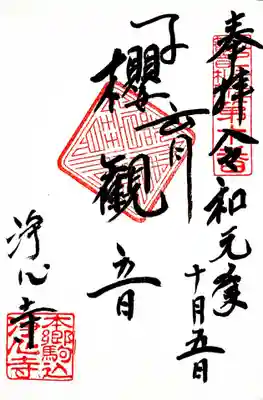 奉拝 令和元年
十月五日
子育
櫻観音
浄心寺
本郷駒込
浄心寺